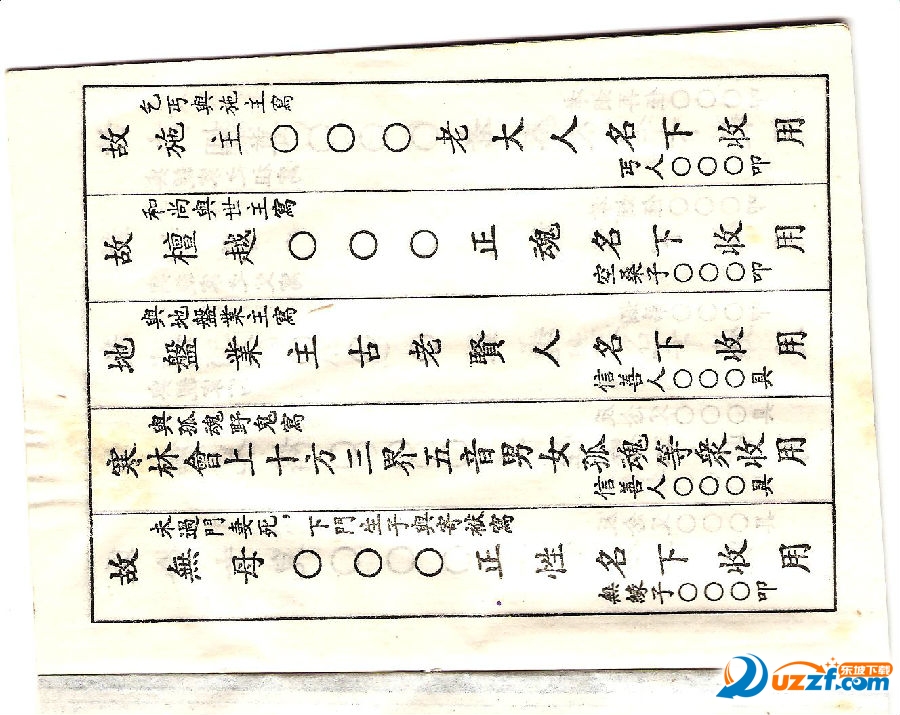 乞丐與施主寫
故施主〇〇〇老大人名下收用
丐人〇〇〇叩
和尚與世主寫
故檀越〇〇〇正魂名下收用
空桑子〇〇〇叩
與地盤業主寫
地盤業主古老賢人名下收用
信善人〇〇〇具
與孤魂野鬼寫
寒林會上十方三界五音男女孤魂等衆收用
信善人〇〇〇具
未過門妻死，下門生子與寄袱寫
故無母〇〇〇正性名下收用
無緣子〇〇〇叩
东坡下载
uzzf.com